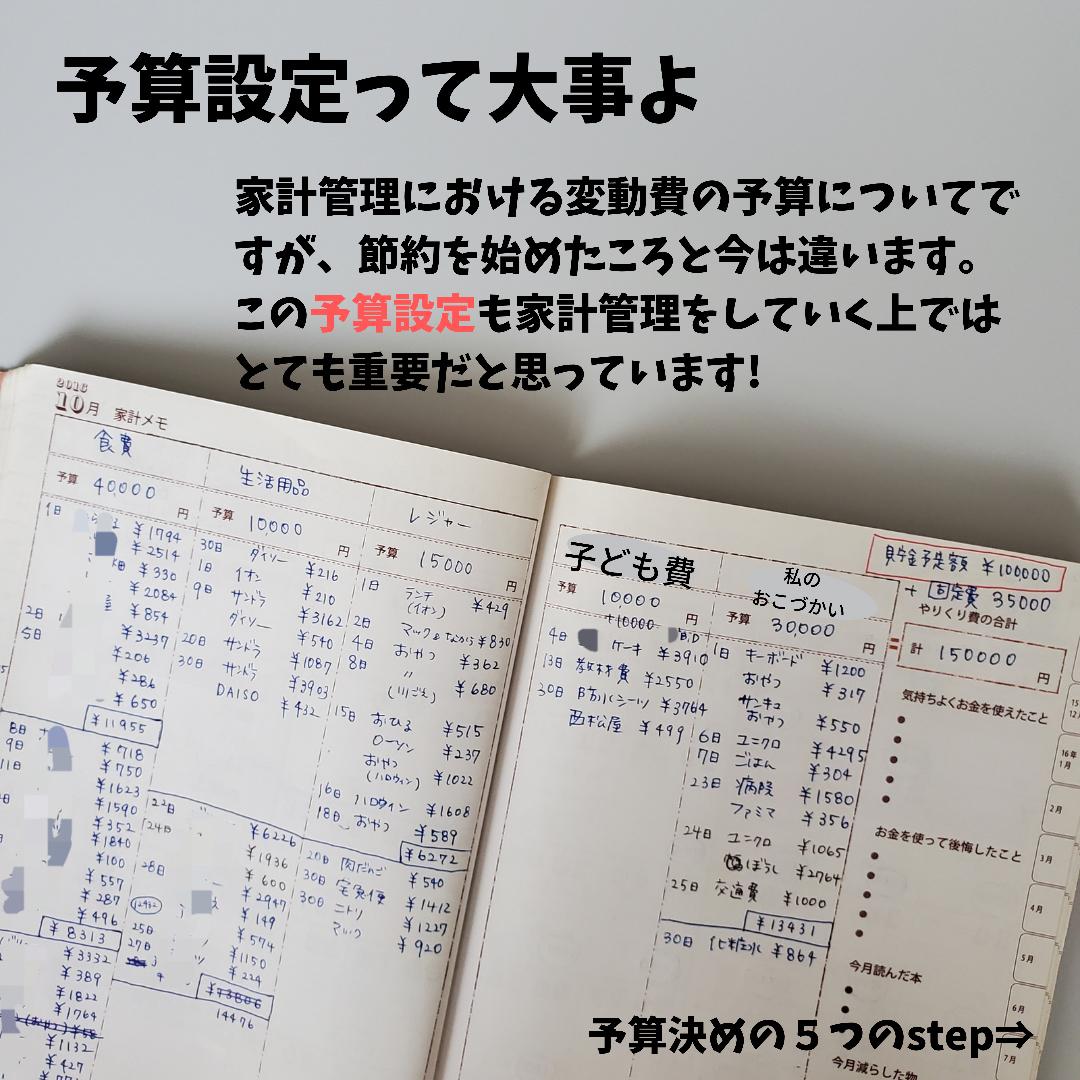 予算設定って大事よ
家計管理における変動費の予算についてで
すが、節約を始めたころと今は違います。
この予算設定も家計管理をしていく上では
とても重要だと思っています!
2016
10月 家計メモ
食費
予算 40,000 円
1日
¥1794
¥2514
¥330
¥2084
2日 ¥854
5日 ¥3237
¥206
¥286
¥650
¥11955
8日 ¥718
9日 ¥750
11日 ¥1623
¥1590
¥352
¥1840
¥100
¥557
¥287
¥496
¥8313
¥3332
¥389
¥1822
¥1764
¥1132
¥427
生活用品
予算 10,000 円
30日 ダイソー ¥216
1日 イオン ¥210
9日 サンドラ ¥3162
ダイソー ¥540
20日 サンドラ ¥1087
30日 サンドラ ¥3903
DAISO ¥432
22日 ¥6226
24日 ¥1936
¥600
28日 ¥2947
12432 ¥149
25日 ¥574
27日 ¥1150
¥224
14476
レジャー
予算 15000 円
1日 ランチ(イオン) ¥429
2日 ¥830
4日 おやつ ¥362
8日 〃 ¥680
15日 おひる ¥515
ローソン ¥237
おやつ(ハロウィン) ¥1022
16日 ハロウィン ¥1608
18日 おやつ ¥589
¥6272
20日 肉だんご ¥540
30日 宅急便 ¥1412
30日 ニトリ ¥1227
マック ¥920
子ども費
予算 10000 円
+10000
4日 ケーキ ¥3910
13日 教材費 ¥2550
30日 防水シーツ ¥3764
西松屋 ¥499
私の
おこづかい
予算 30,000 円
1日 キーボード ¥1200
おやつ ¥317
サンキュ
おやつ ¥550
6日 ユニクロ ¥4295
7日 ごはん ¥304
23日 病院 ¥1580
ファミマ ¥356
24日 ユニクロ ¥1065
ぼうし ¥2764
25日 交通費 ¥1000
¥13431
30日 化粧水 ¥864
貯金予定額 ¥100,000
+ 固定費 35000
やりくり費の合計
= 計 150000 円
気持ちよくお金を使えたこと
お金を使って後悔したこと
今月読んだ本
今月減らした物
16年
1月
2月
3月
4月
5月
6月
7月
予算決めの5つのstep⇒